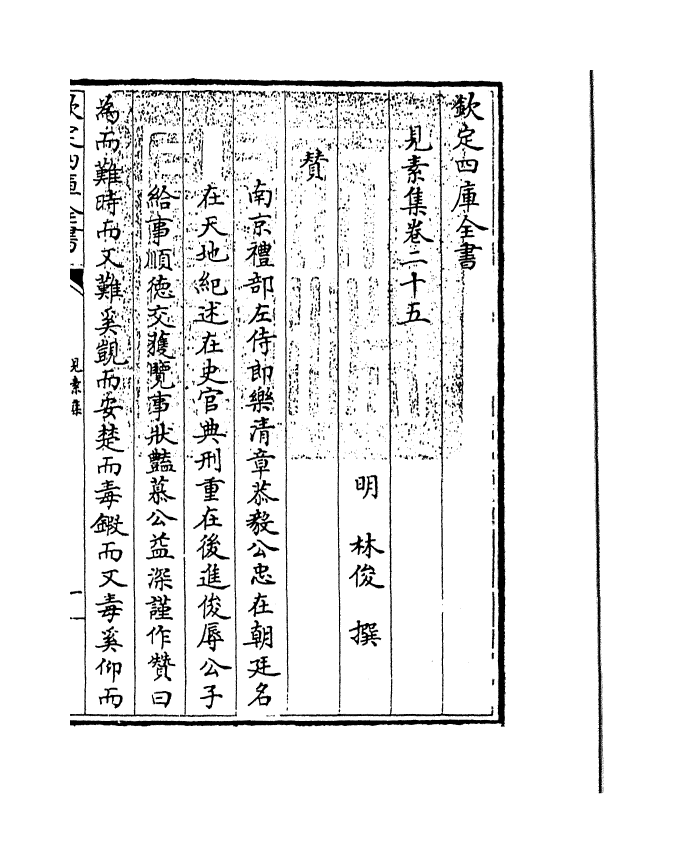 欽定四庫全書
見素集卷二十五
明 林俊 撰
贊
南京禮部左侍郎樂清章恭毅公忠在朝廷名
在天地紀述在史官典刑重在後進俊辱公子
給事順德交獲覽事狀豔慕公益深謹作贊曰
為而難時而又難奚覬而安楚而毒鍛而又毒奚仰而
欽定四庫全書
見素集
一